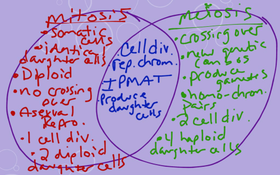 mitosis
• somatic cells
• identical daughter cells
• Diploid
• No crossing over
• Asexual Repro.
• 1 cell div.
• 2 diploid daughter cells
Cell div.
rep. chrom.
IPMAT
Produce daughter cells
Meiosis
• crossing over
• new genetic combos
• produce gametes
• homo. chrom. pairs
• 2 cell div.
• 4 haploid daughter cells